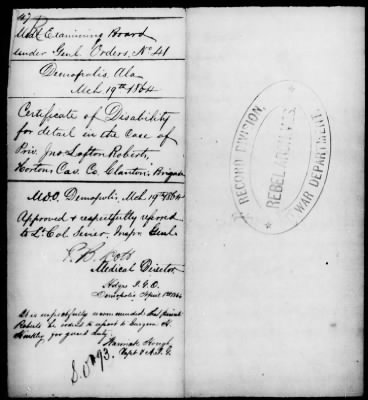 Med. Examining Board
under Genl. Orders, No 41
Demopolis, Ala
Mch 19th 1864
Certificate of Disability
for detail in the Case of
Priv. Jno Lofton Roberts,
Hortons Cav. Co. Clanton's Brigade
M.D.O. Demopolis, Mch 19th 1864
Approved & respectfully referred
to Lt. Col. Sevier, Insp. Genl.
P. B. Scott
Medical Director
Hdqrs I.G.O.
Demopolis April 1st 1864
It is respectfully recommended that private
Roberts be ordered to report to Surgeon
for guard duty.
Capt & A.I.G.
RECORD DIVISION,
REBEL ARCHIVES,
WAR DEPARTMENT.